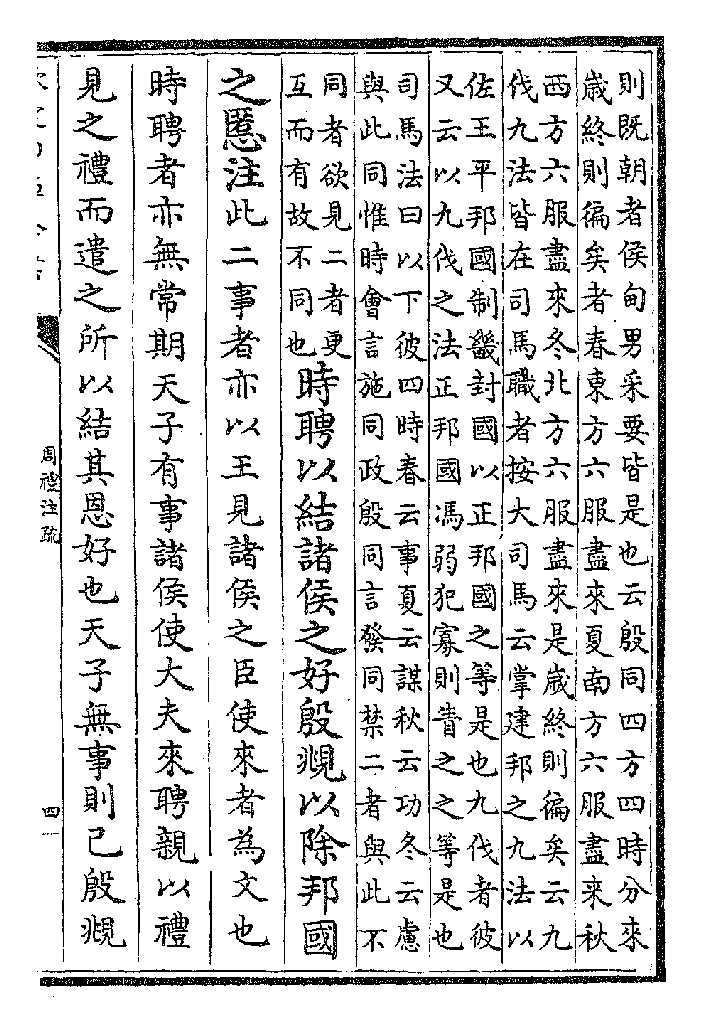 則既朝者侯甸男采要皆是也云殷同四方四時分來
歲終則徧矣者春東方六服盡來夏南方六服盡來秋
西方六服盡來冬北方六服盡來是歲終則徧矣云九
伐九法皆在司馬職者按大司馬云掌建邦之九法以
佐王平邦國制畿封國以正邦國之等是也九伐者彼
又云以九伐之法正邦國馮弱犯寡則眚之之等是也
司馬法曰以下彼四時春云事夏云謀秋云功冬云慮
與此同惟時會言施同政殷同言發同禁二者與此不
同者欲見二者更
互而有故不同也
時聘以結諸侯之好殷覜以除邦國
之慝注此二事者亦以王見諸侯之臣使來者為文也
時聘者亦無常期天子有事諸侯使大夫來聘親以禮
見之禮而遣之所以結其恩好也天子無事則已殷覜
周禮注疏
四